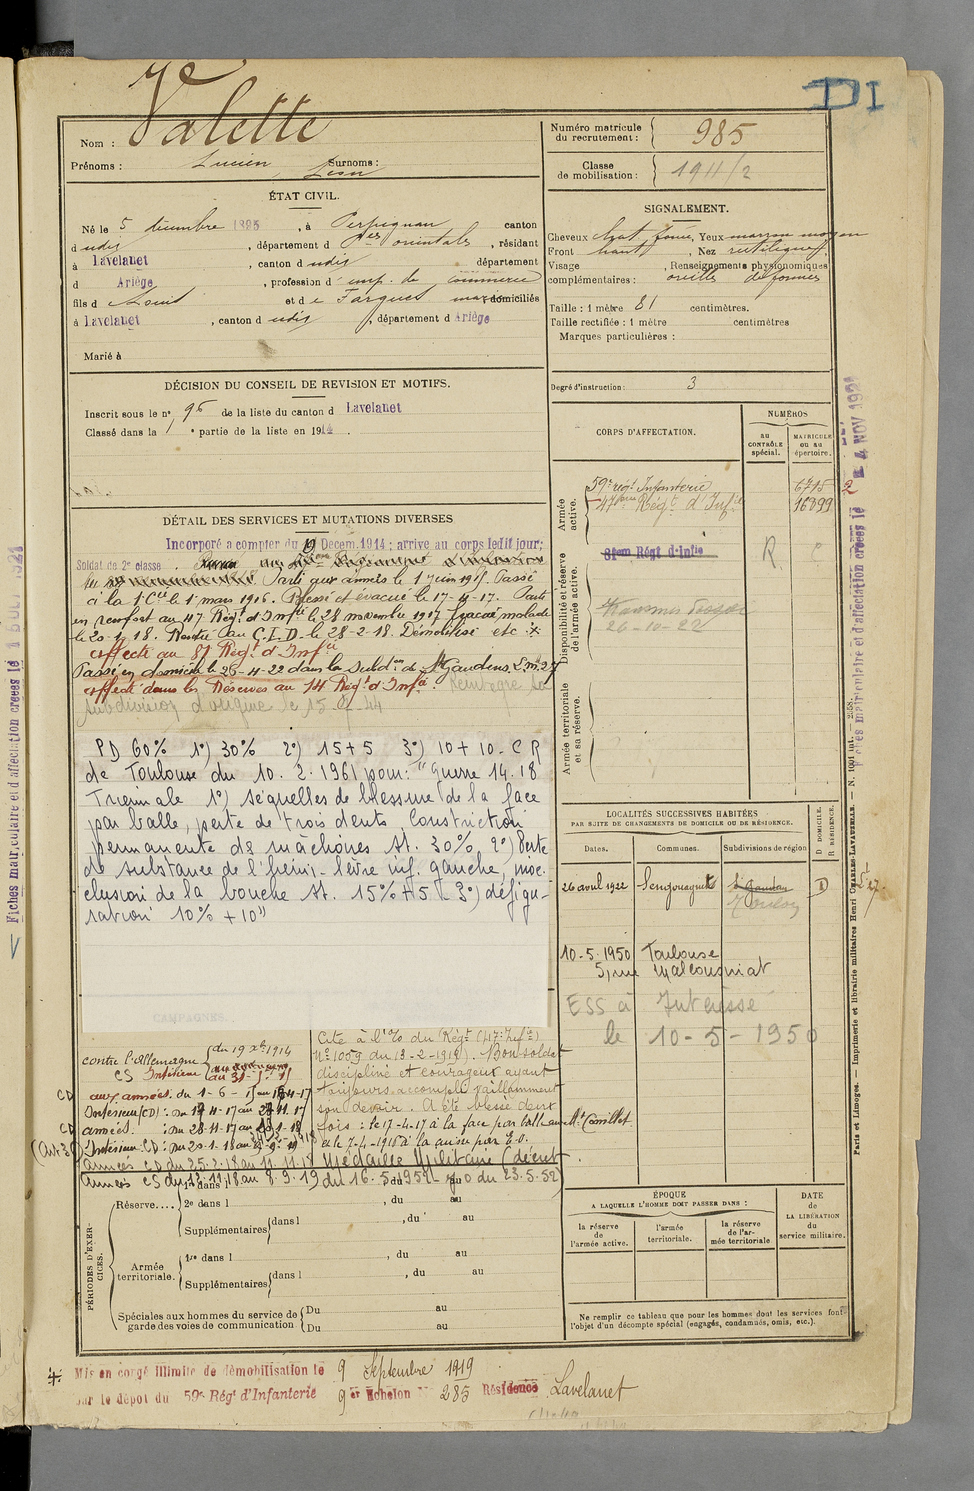 DI
Nom : Valette
Prénoms : Lucien, Léon Surnoms :
Numéro matricule du recrutement : 985
Classe de mobilisation : 1911/2
ÉTAT CIVIL.
Né le 5 décembre 189 , à Perpignan canton
d udit , département d Pées orientales , résidant
à Lavelanet , canton d udit département
d Ariège , profession d emp. de commerce
fils d Louis et de Fargues domiciliés
à Lavelanet , canton d udit , département d Ariège
Marié à
SIGNALEMENT.
Cheveux chat. foncé, Yeux marron moyen
Front haut , Nez rectiligne
Visage , Renseignements physionomiques
complémentaires : oreilles déformées
Taille : 1 mètre 81 centimètres.
Taille rectifiée : 1 mètre centimètres
Marques particulières :
Degré d'instruction : 3
DÉCISION DU CONSEIL DE REVISION ET MOTIFS.
Inscrit sous le no 96 de la liste du canton d Lavelanet
Classé dans la 1 e partie de la liste en 1914 .
DÉTAIL DES SERVICES ET MUTATIONS DIVERSES
Incorporé à compter du 19 Décem. 1914 ; arrivé au corps ledit jour;
Soldat de 2e classe
Parti aux armées le 1 Juin 1915. Passé
à la 1e Cie le 1er mars 1916. Blessé et évacué le 17-4-17. Parti
en renfort au 47 Régt d'Inftie le 28 novembre 1917. Evacué malade
le 20-1-18. Rentré au C.I.D. le 28-2-18. Démobilisé etc
affecté au 81 Régt d'Infie
Passé en domicile le 26-4-22 dans la Subdon de St Gaudens
affecté dans les Réserves au 14 Régt d'Infie. Réintègre sa
subdivision d'origine le 15
PD 60% 1°) 30% 2°) 15+5 3°) 10+10 - C R
de Toulouse du 10. 2. 1961 pour : "Guerre 14.18
1°) séquelles de blessure de la face
par balle, perte de trois dents Constriction
permanente des mâchoires St. 30% 2°) Perte
de substance de l'hémi-lèvre inf. gauche, inoc-
clusion de la bouche St. 15% + 5 3°) défigu-
ration 10% + 10"
CAMPAGNES.
contre l'Allemagne du 19 Xbre 1914
CS Intérieur
CD aux armées. du 1-6-15 au 17-4-17
Intérieur (CD) : du 17-4-17 au 27.11.17
CD armées. : du 28-11-17 au 20-1-18
Intérieur CD : du 20-1-18 au
armées CD du 25.2.18 au 11.11.18
armées CS du 12.11.18 au 8.9.19
Cité à l'O/ du Régt (47e Infie)
N° 1009 du 13-2-1919). Bon soldat
discipliné et courageux ayant
toujours accompli vaillamment
son devoir. A été blessé deux
fois : le 17-4-17 à la face par balle au Mt Cornillet
et le 7-4-1918 à la cuisse par E.O.
Médaille Militaire (décret
du 16-5-1952 - JO du 23.5.52)
CORPS D'AFFECTATION.
NUMÉROS
AU CONTRÔLE spécial.
MATRICULE ou au répertoire.
Armée active.
59e régt Infanterie 6715
47ème Régt d'Infie 16899
Disponibilité et réserve de l'armée active.
81em Régt d'Infie R C
26-10-22
Armée territoriale et sa réserve.
LOCALITÉS SUCCESSIVES HABITÉES
PAR SUITE DE CHANGEMENTS DE DOMICILE OU DE RÉSIDENCE.
Dates. Communes. Subdivisions de région D DOMICILE. R RÉSIDENCE.
26 avril 1922 Sengouagnet St Gaudens D
10-5-1950 Toulouse
5, rue Malcousinat
ESS à Intéressé
le 10-5-1950
PÉRIODES D'EXERCICES.
Réserve.... 1re dans l , du au
2e dans l , du au
Supplémentaires dans l , du au
Armée territoriale. 1re dans l , du au
Supplémentaires dans l , du au
Spéciales aux hommes du service de garde des voies de communication Du au
Du au
ÉPOQUE
A LAQUELLE L'HOMME DOIT PASSER DANS :
la réserve de l'armée active. l'armée territoriale. la réserve de l'armée territoriale
DATE de LA LIBÉRATION du service militaire.
Ne remplir ce tableau que pour les hommes dont les services font
l'objet d'un décompte spécial (engagés, condamnés, omis, etc.).
Mis en congé illimité de démobilisation le 9 Septembre 1919
par le dépôt du 59e Régt d'Infanterie 9er Echelon n° 285 Résidence Lavelanet
Paris et Limoges. — Imprimerie et librairie militaires Henri CHARLES-LAVAUZELLE.
Fiches matriculaire et d'affectation créées le 4 NOV 1921
Fiches matriculaire et d'affectation créées le